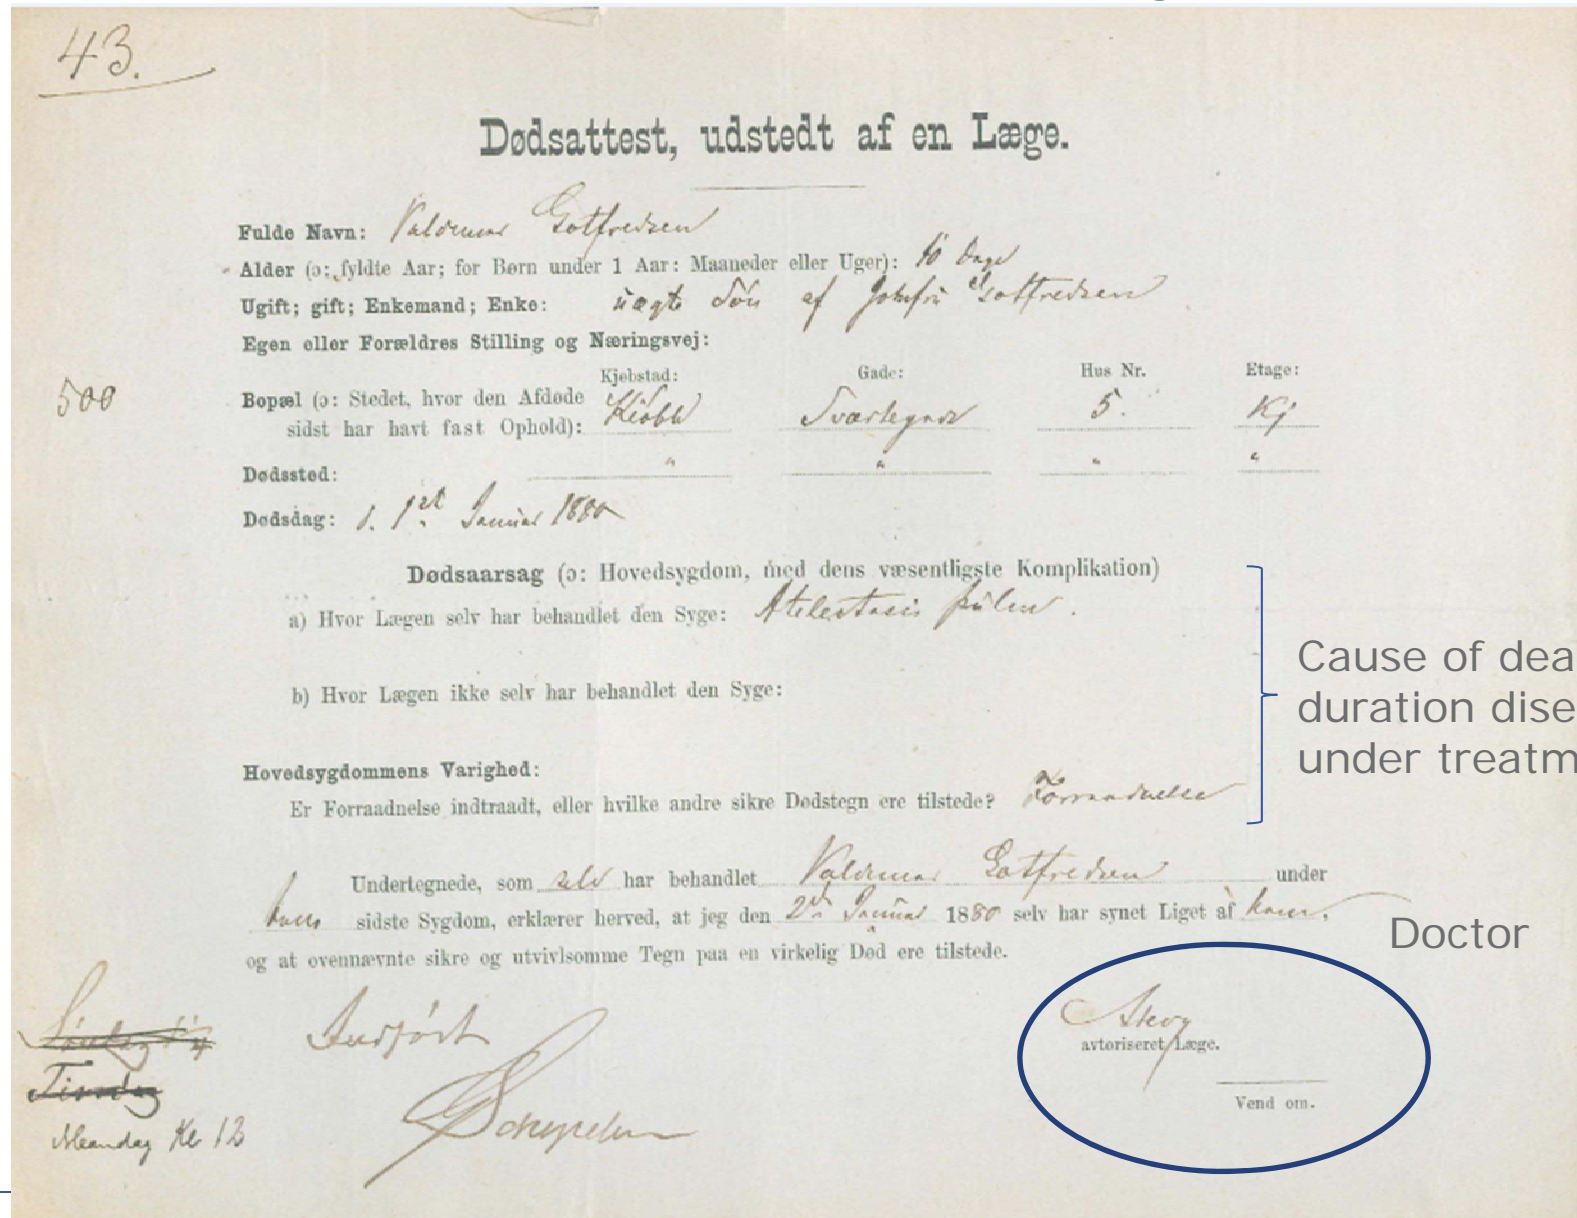 43.
Dødsattest, udstedt af en Læge.
Fulde Navn: Valdemar Gotfredsen
Alder (ɔ: fyldte Aar; for Børn under 1 Aar: Maaneder eller Uger): 10 Dage
Ugift; gift; Enkemand; Enke: uægte Søn af Jomfru Gotfredsen
Egen eller Forældres Stilling og Næringsvej:
Kjøbstad: Gade: Hus Nr. Etage:
500
Bopæl (ɔ: Stedet, hvor den Afdøde
sidst har havt fast Ophold): 5. Kj
Dødssted: " " " "
Dødsdag: d. 1st Januar 1880
Dødsaarsag (ɔ: Hovedsygdom, med dens væsentligste Komplikation)
a) Hvor Lægen selv har behandlet den Syge: Atelectasis pulm.
b) Hvor Lægen ikke selv har behandlet den Syge:
Cause of dea
duration dise
under treatm
Hovedsygdommens Varighed:
Er Forraadnelse indtraadt, eller hvilke andre sikre Dødstegn ere tilstede? Forraadnelse
Undertegnede, som selv har behandlet Valdemar Gotfredsen under
hans sidste Sygdom, erklærer herved, at jeg den 2den Januar 1880 selv har synet Liget af ham,
og at ovennævnte sikre og utvivlsomme Tegn paa en virkelig Død ere tilstede.
Doctor
Indført
avtoriseret Læge.
Vend om.
Søndag
Tirsdag
Mandag Kl 12